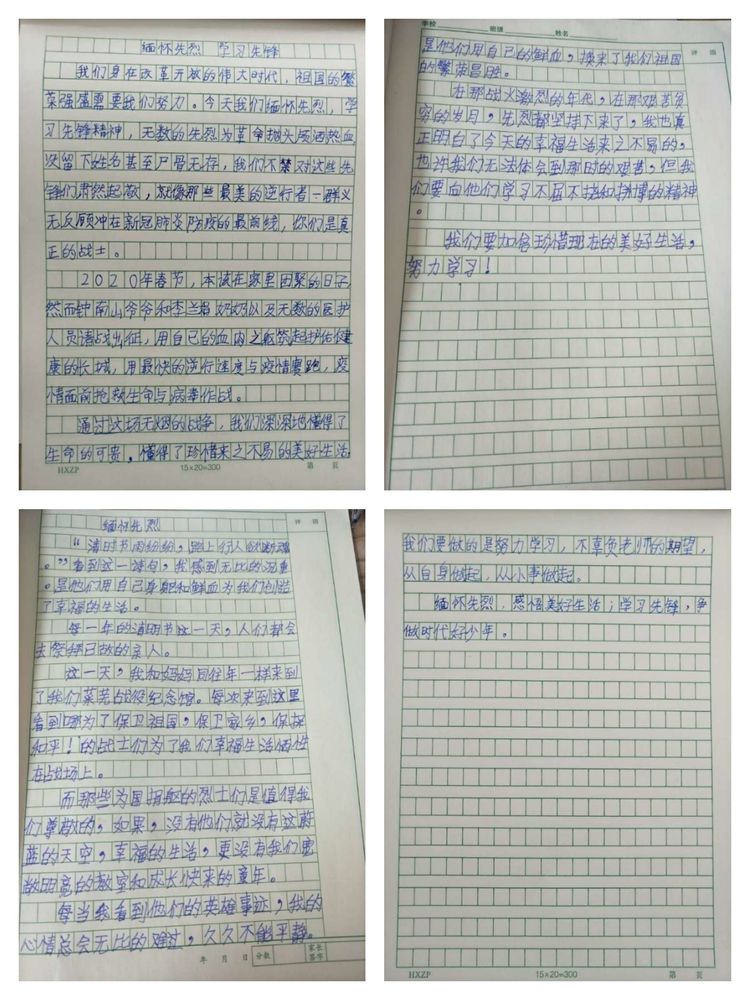 缅怀先烈 学习先锋
我们身在改革开放的伟大时代，祖国的繁
荣强盛需要我们努力。今天我们缅怀先烈，学
习先锋精神，无数的先烈为革命抛头颅洒热血
没留下姓名甚至尸骨无存，我们不禁对这些先
锋们肃然起敬，就像那些最美的逆行者一群义
无反顾冲在新冠肺炎防疫的最前线，你们是真
正的战士。
2020年春节，本该在家里团聚的日子，
然而钟南山爷爷和李兰娟奶奶以及无数的医护
人员请战出征，用自己的血肉之躯筑起护佑健
康的长城，用最快的逆行速度与疫情赛跑，疫
情面前抢救生命与病毒作战。
通过这场无烟的战争，我们深深地懂得了
生命的可贵，懂得了珍惜来之不易的美好生活，
HXZP 15×20=300 第 页
学校 班级 姓名
评 语
是他们用自己的鲜血，换来了我们祖国
的繁荣昌胜。
在那战火激烈的年代，在那艰苦贫
穷的岁月，先烈都坚持下来了，我也真
正明白了今天的幸福生活来之不易的，
也许我们无法体会到那时的艰苦，但我
们要向他们学习不屈不挠和拼博的精神
。
我们要加倍珍惜现在的美好生活，
努力学习！
缅怀先烈
评 语
“清明时节雨纷纷，路上行人欲断魂
。”看到这一诗句，我感到无比的沉重
。是他们用自己身躯和鲜血为我们创造
了幸福的生活。
每一年的清明节这一天，人们都会
去祭拜已故的亲人。
这一天，我和妈妈同往年一样来到
了我们莱芜战役纪念馆。每次来到这里
看到哪为了保卫祖国，保卫家乡，保护
和平！的战士们为了我们幸福生活牺牲
在战场上。
而那些为国捐躯的烈士们是值得我
们尊敬的，如果，没有他们就没有这蔚
蓝的天空，幸福的生活，更没有我们宽
敞明亮的教室和成长快来的童年。
每当我看到他们的英雄事迹，我的
心情总会无比的难过，久久不能平静。
年 月 日 分数 家长签字
我们要做的是努力学习，不辜负老师的期望，
从自身做起，从小事做起。
缅怀先烈，感悟美好生活；学习先锋，争
做时代好少年。
HXZP 15×20=300 第 页